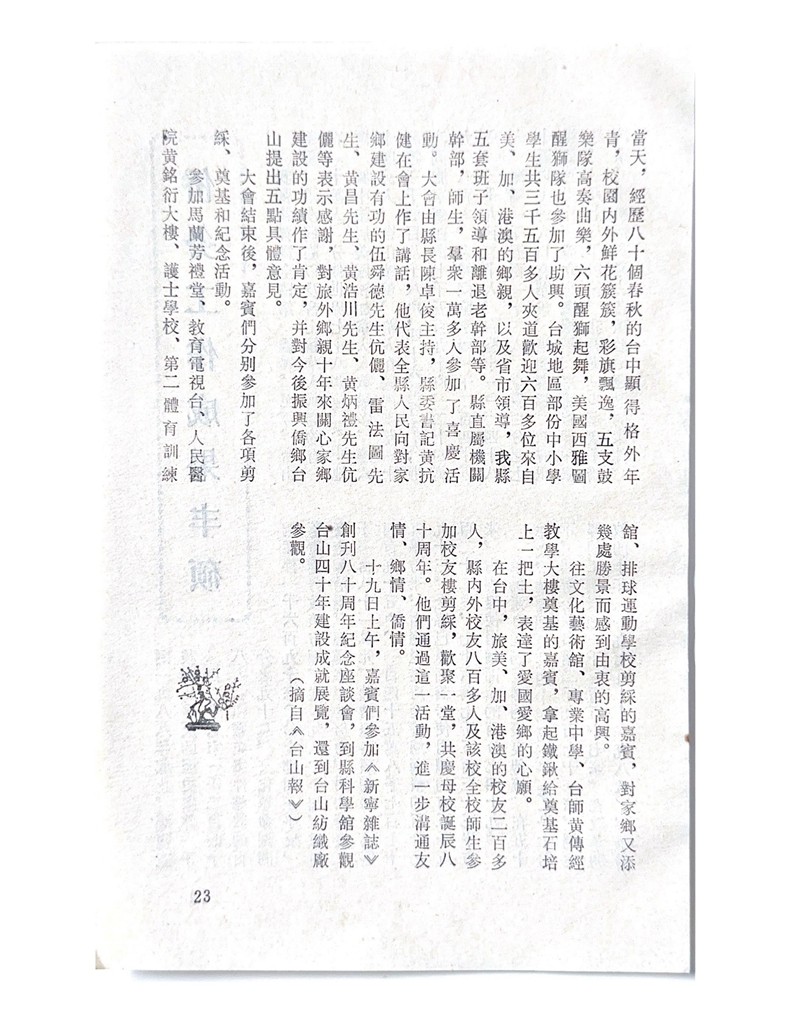 當天，經歷八十個春秋的台中顯得格外年
青，校園内外鮮花簇簇，彩旗飄逸，五支鼓
樂隊高奏曲樂，六頭醒獅起舞，美國西雅圖
醒獅隊也參加了助興。台城地區部份中小學
學生共三千五百多人夾道歡迎六百多位來自
美、加、港澳的鄉親，以及省市領導，我縣
五套班子領導和離退老幹部等。縣直屬機關
幹部，師生，羣衆一萬多人參加了喜慶活
動。大會由縣長陳卓俊主持，縣委書記黄抗
健在會上作了講話，他代表全縣人民向對家
鄉建設有功的伍舜德先生伉儷、雷法圖先
生、黄昌先生、黄浩川先生、黄炳禮先生伉
儷等表示感謝，對旅外鄉親十年來關心家鄉
建設的功績作了肯定，并對今後振興僑鄉台
山提出五點具體意見。
大會結束後，嘉賓們分别參加了各項剪
綵、奠基和紀念活動。
參加馬蘭芳禮堂、教育電視台、人民醫
院黄銘衍大樓、護士學校、第二體育訓練
舘、排球運動學校剪綵的嘉賓，對家鄉又添
幾處勝景而感到由衷的高興。
往文化藝術舘、專業中學、台師黄傳經
教學大樓奠基的嘉賓，拿起鐵鍬給奠基石培
上一把土，表達了愛國愛鄉的心願。
在台中，旅美、加、港澳的校友二百多
人，縣内外校友八百多人及該校全校師生參
加校友樓剪綵，歡聚一堂，共慶母校誕辰八
十周年。他們通過這一活動，進一步溝通友
情、鄉情、僑情。
十九日上午，嘉賓們參加《新寧雜誌》
創刊八十周年紀念座談會，到縣科學舘參觀
台山四十年建設成就展覽，還到台山紡織廠
參觀。
（摘自《台山報》）
23